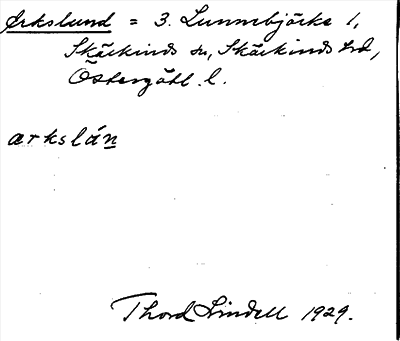 Arkslund = 3. Lunnebjörke 1,
Skärkinds sn, Skärkinds hd,
Östergötl. l.
arkslán
Thord Lindell 1929.